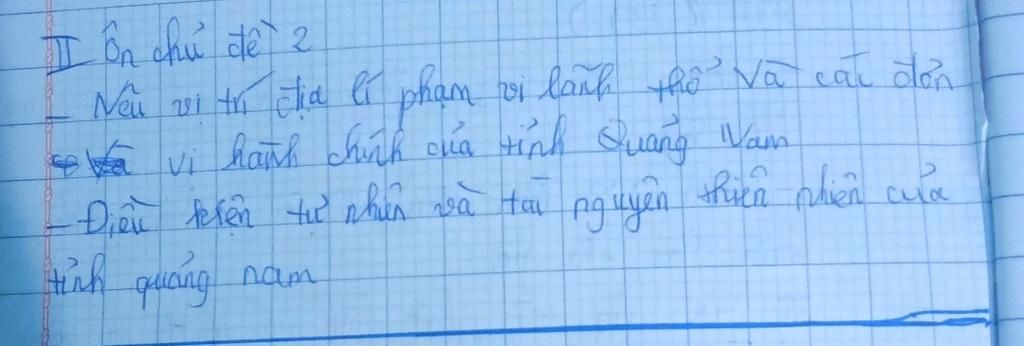 II Ôn chủ đề 2
- Nêu vị trí địa lí phạm vi lãnh thổ và các đơn
vị hành chính của tỉnh Quảng Nam
- Điều kiện tự nhiên và tài nguyên thiên nhiên của
tỉnh quảng nam